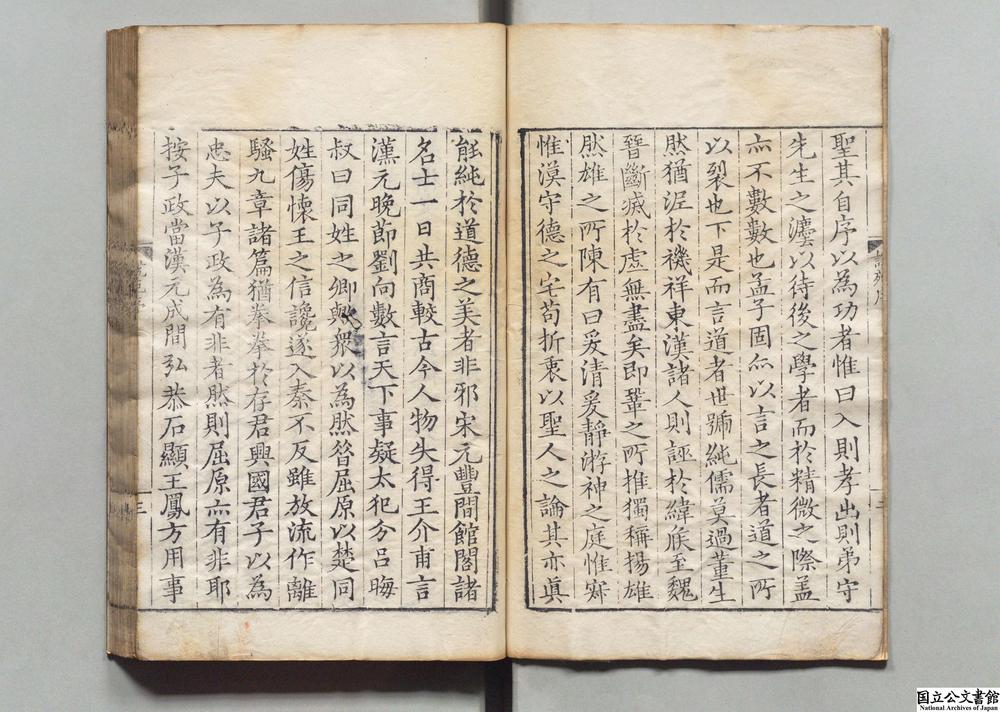 聖其自序以為功者惟曰入則孝出則弟守
先生之灋以待後之學者而於精微之際盖
亦不數數也孟子固亦以言之長者道之所
以裂也下是而言道者世號純儒莫過董生
然猶涅於禨祥東漢諸人則誣於緯候至魏
晉斷滅於虛無盡矣即鞏之所推獨稱揚雄
然雄之所陳有曰爰清爰静游神之庭惟寂
惟漠守德之宅苟折衷以聖人之論其亦真
能純於道德之美者非邪宋元豐間館閣諸
名士一日共商較古今人物失得王介甫言
漢元晚節劉向數言天下事疑太犯分呂晦
叔曰同姓之卿歟衆以為然昝屈原以楚同
姓傷懷王之信讒遂入秦不反雖放流作離
騷九章諸篇猶拳拳於存君興國君子以為
忠夫以子政為有非者然則屈原亦有非耶
按子政當漢元成間弘恭石顯王鳳方用事
三
三
国立公文書館
National Archives of Japan